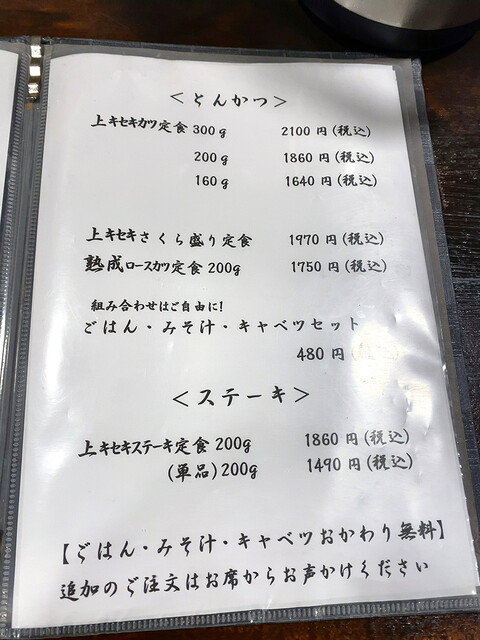 ＜とんかつ＞
上キセキカツ定食 300g 2100円(税込)
200g 1860円(税込)
160g 1640円(税込)
上キセキさくら盛り定食 1970円(税込)
熟成ロースカツ定食 200g 1750円(税込)
組み合わせはご自由に!
ごはん・みそ汁・キャベツセット
480円
＜ステーキ＞
上キセキステーキ定食 200g 1860円(税込)
(単品) 200g 1490円(税込)
【ごはん・みそ汁・キャベツおかわり無料】
追加のご注文はお席からお声かけください